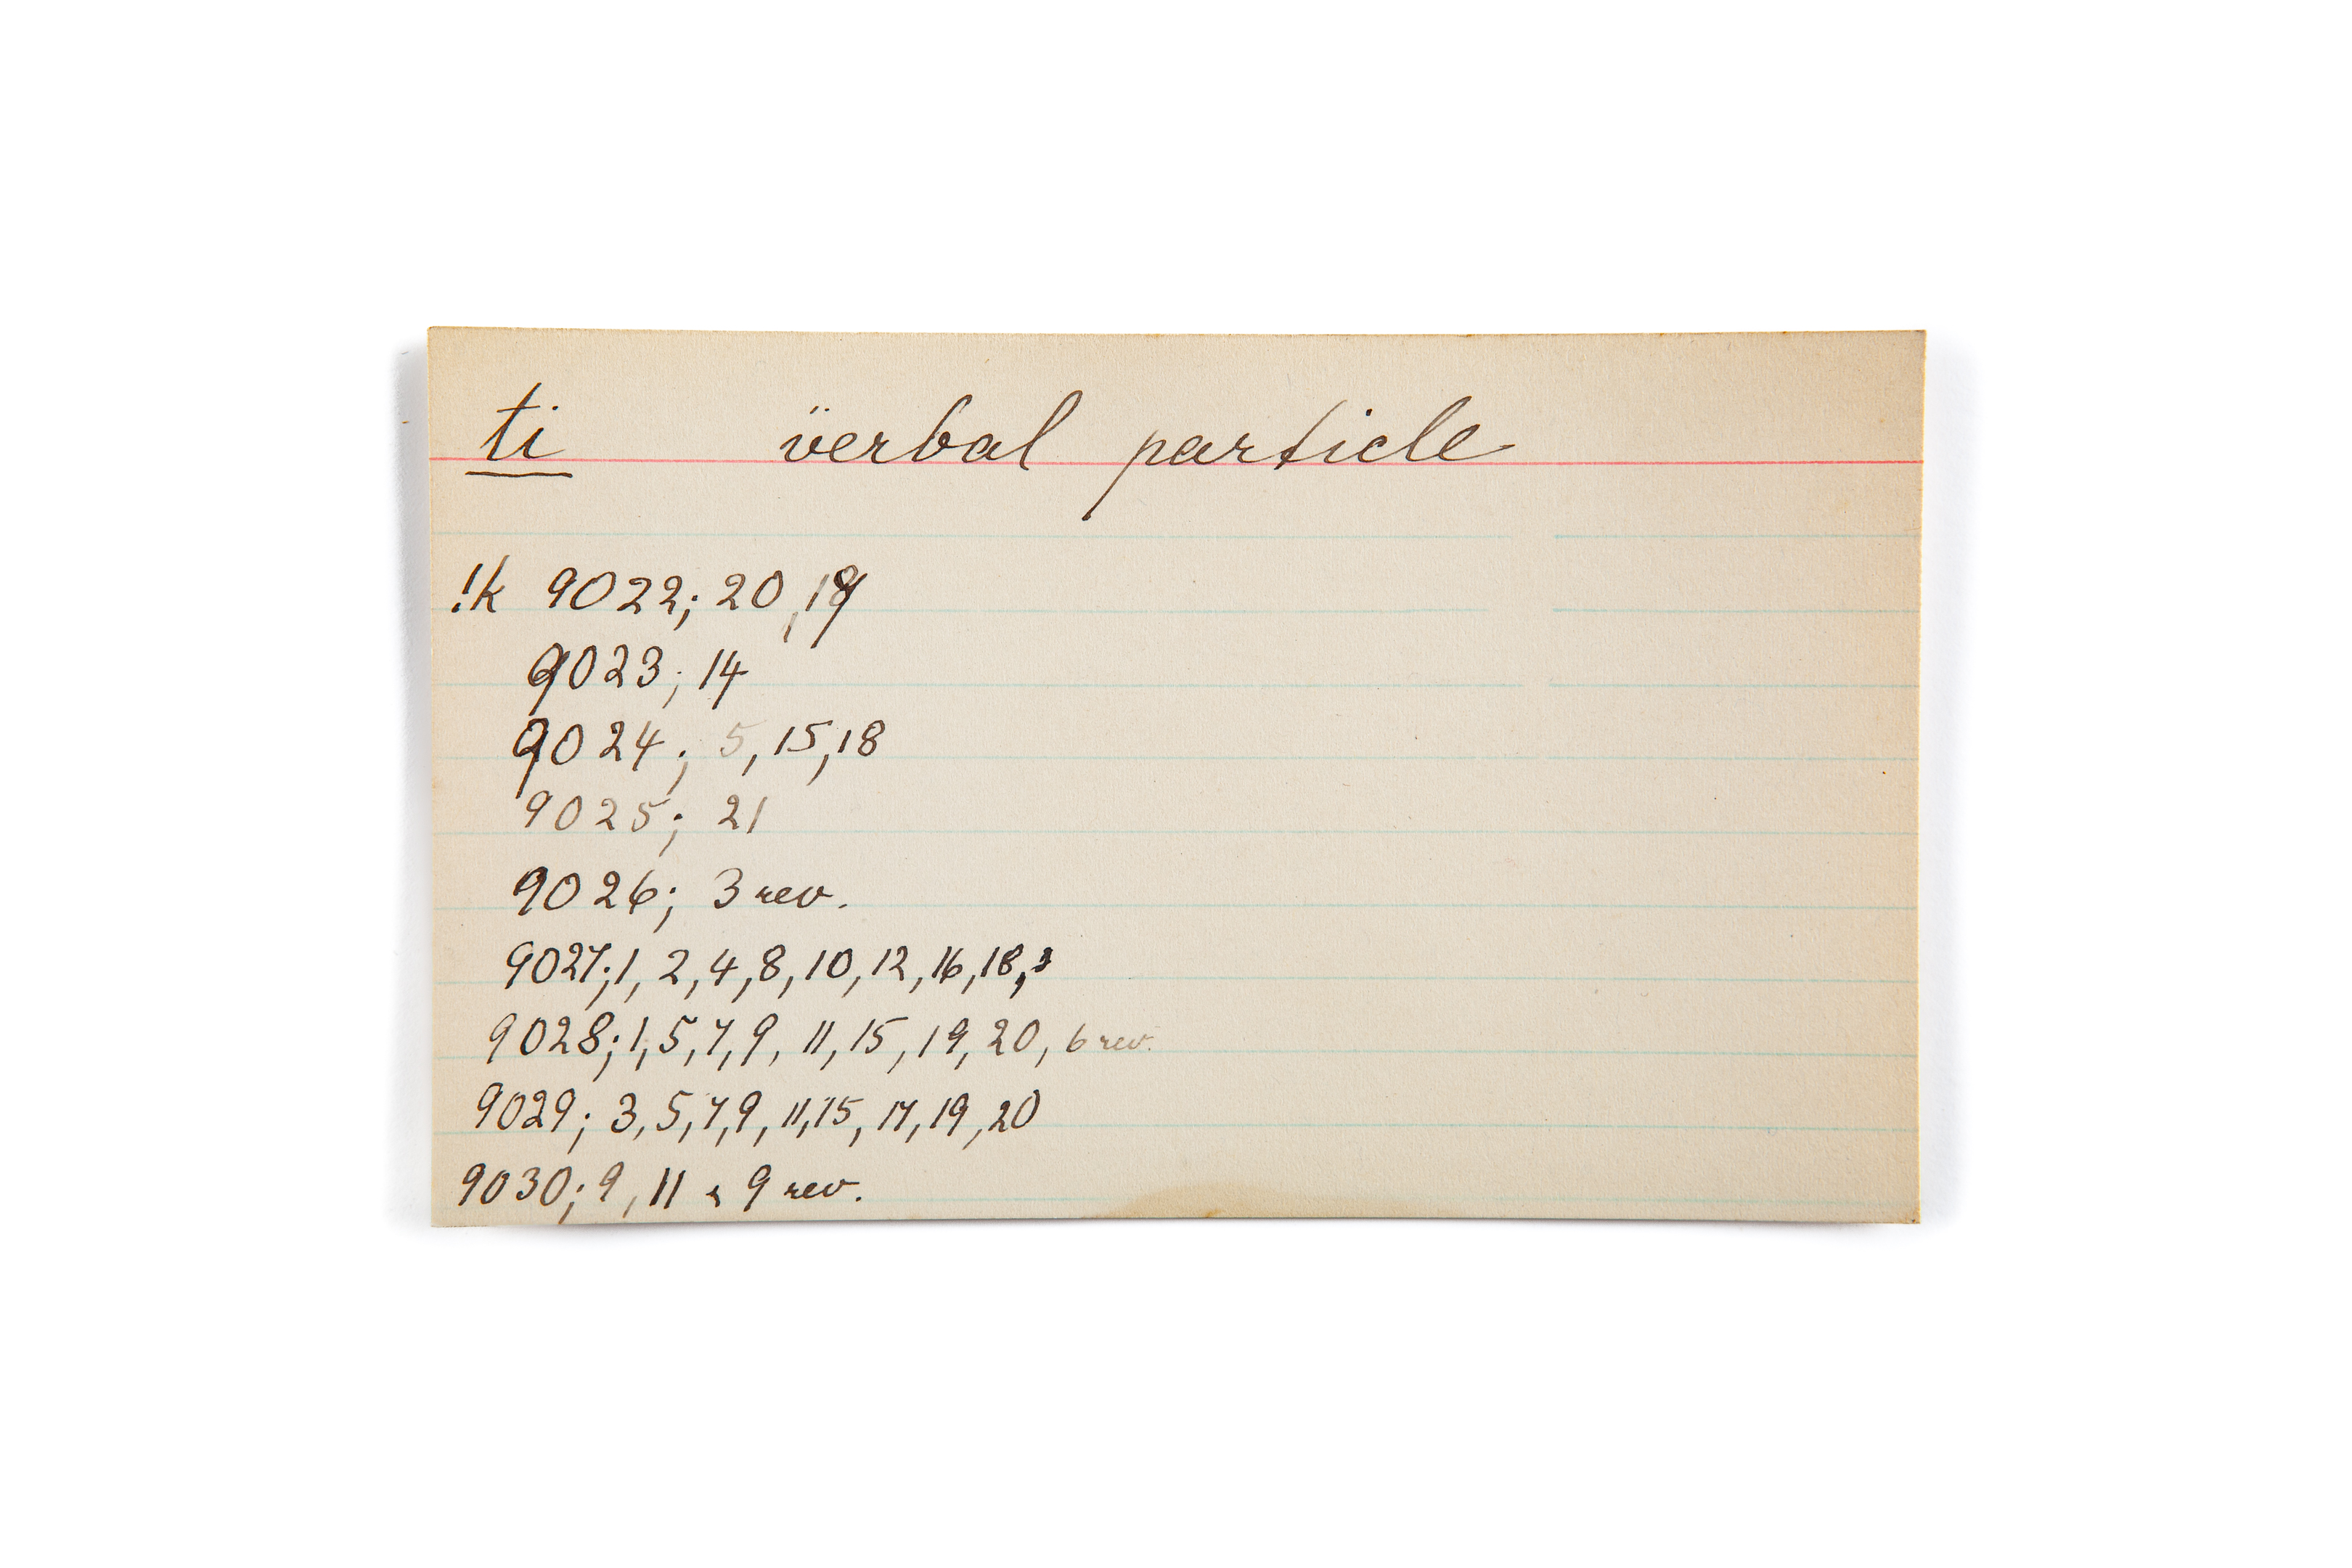 ti verbal particle
!k 9022; 20, 19
9023; 14
9024; 5, 15, 18
9025; 21
9026; 3 rev.
9027; 1, 2, 4, 8, 10, 12, 16, 18,
9028; 1, 5, 7, 9, 11, 15, 19, 20, 6 rev.
9029; 3, 5, 7, 9, 11, 15, 17, 19, 20
9030; 9, 11 & 9 rev.